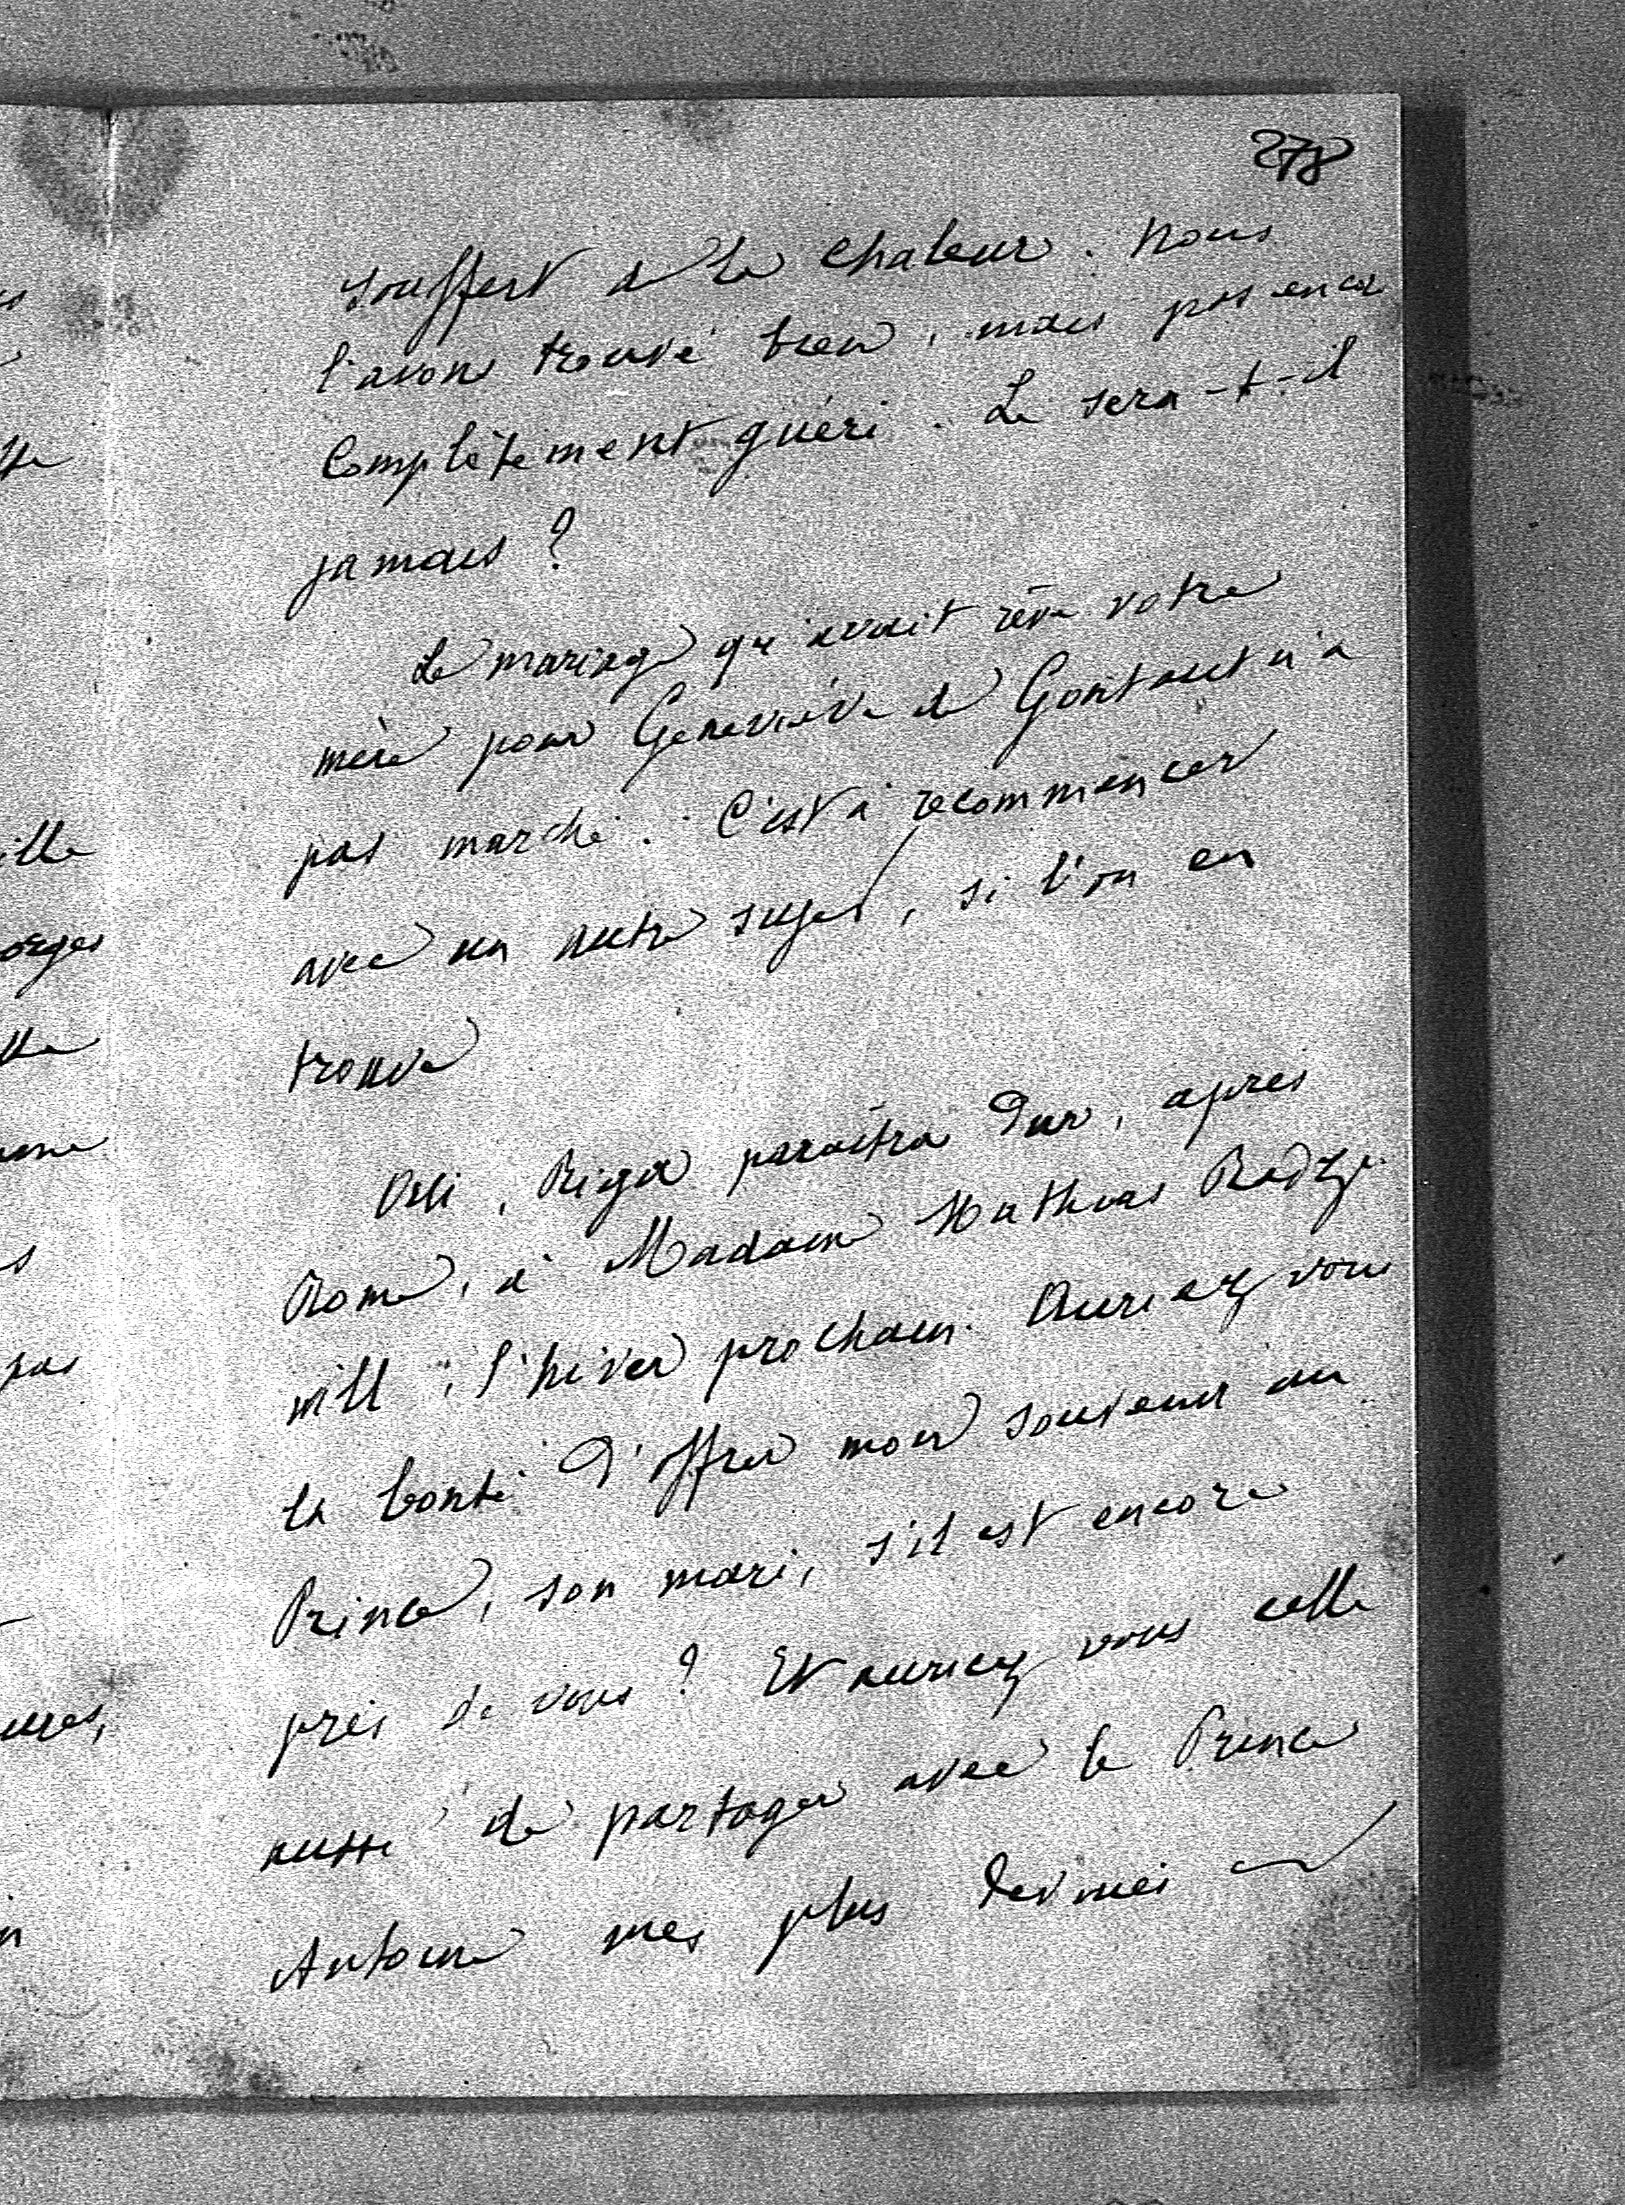 278
souffert de la chaleur. Nous
l'avons trouvé bien, mais pas encore
complètement guéri. Le sera-t-il
jamais ?
Le mariage qu'avait rêvé votre
mère pour Geneviève de Gontaut n'a
pas marché. C'est à recommencer
avec un autre sujet, si l'on en
trouve
Oui, Riga paraîtra dur, après
Rome, à Madame Mathias Radzi-
will, l'hiver prochain. Auriez vous
la bonté d'offrir mon souvenir au
Prince, son mari, s'il est encore
près de vous ? Et auriez vous celle
aussi de partager avec le Prince
Antoine mes plus